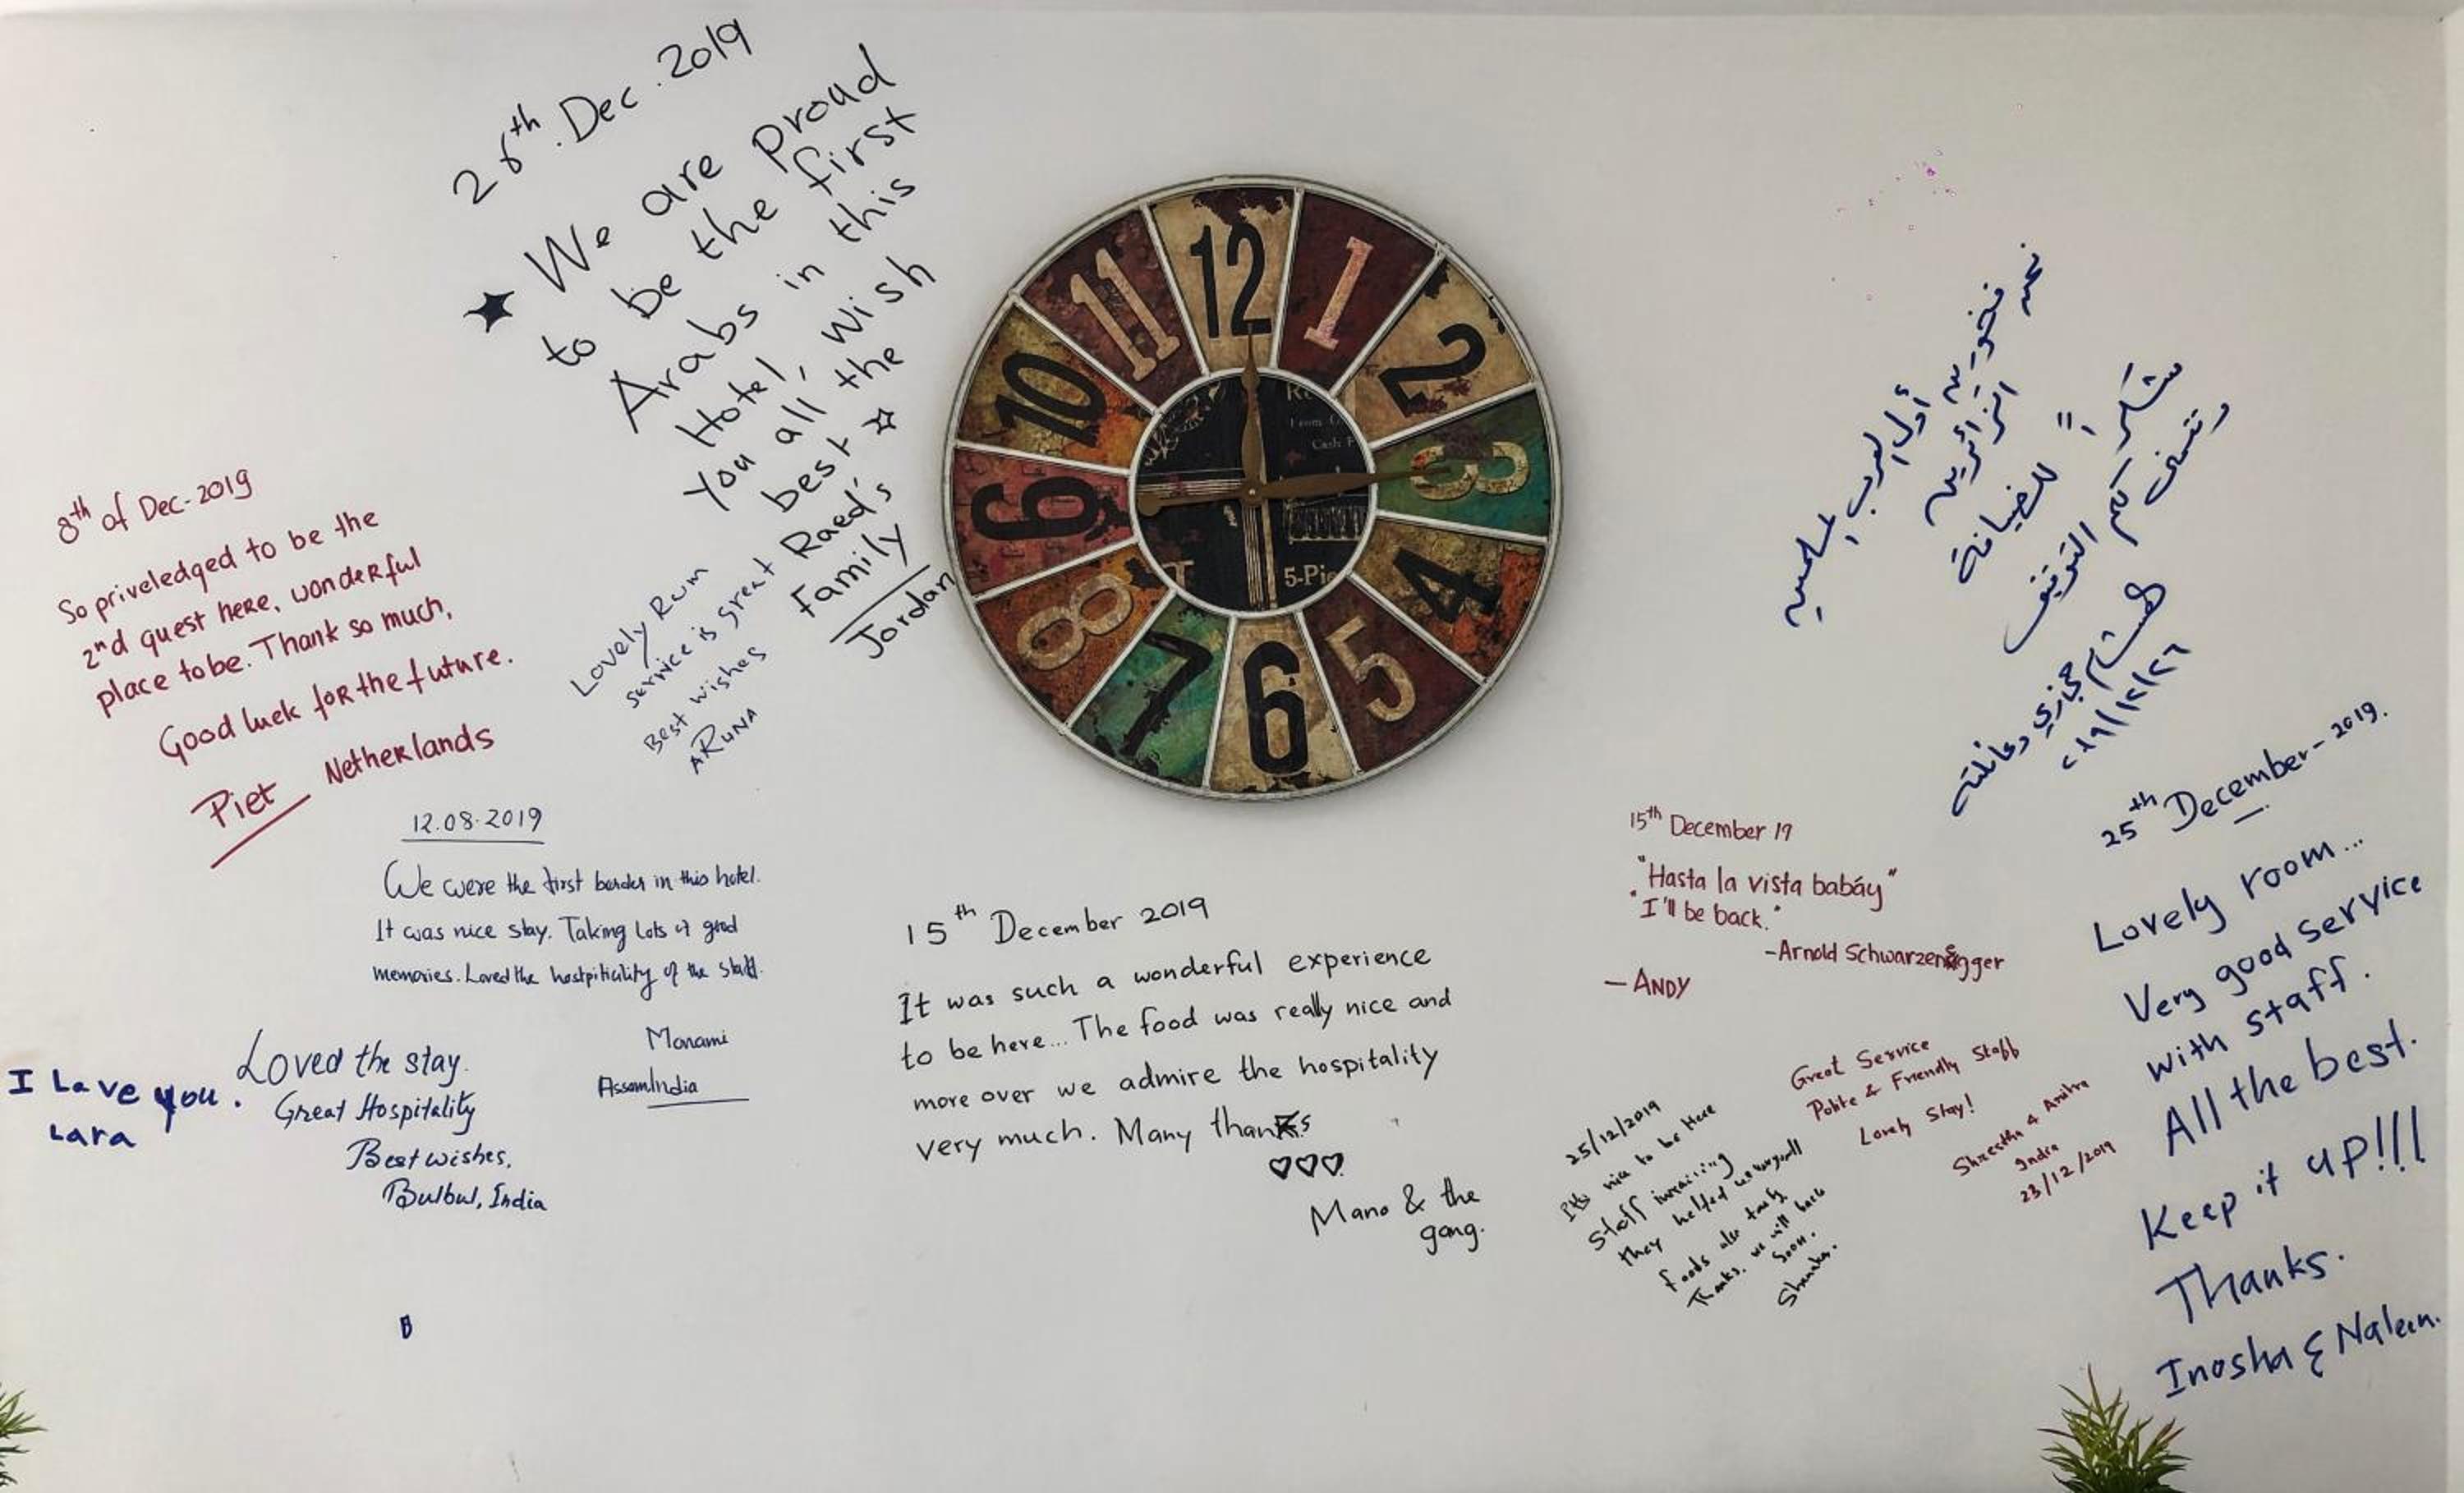 26th. Dec. 2019
We are proud
to be the first
Arabs in this
Hotel, wish
you all the
best
Raed's
Family
Jordan
8th of Dec-2019
So priveledged to be the
2nd quest here, wonderful
place to be. Thank so much,
Good luck for the future.
Piet Netherlands
Lovely Rum
service is great
Best wishes
ARUNA
12.08.2019
We were the first border in this hotel.
It was nice stay. Taking lots of good
memories. Loved the hostpitiality of the staff.
Monami
Assam India
I Lave you.
Lara
Loved the stay.
Great Hospitality
Best wishes,
Bulbul, India
12
1
2
3
4
5
6
7
8
9
10
11
5-Pie
15th December 2019
It was such a wonderful experience
to be here... The food was really nice and
more over we admire the hospitality
very much. Many thanks
Mano & the
gang.
نحن فخورين
أول العرب المسلمين
الزائرين
شكراً للضيافة
ونتمنى لكم التوفيق
هشام حجازي وعائلته
٢٠١٩/١٢/٢٦
15th December 19
"Hasta la vista babáy"
"I'll be back."
-Arnold Schwarzenegger
- ANDY
Great Service
Polite & Friendly Staff
Lovely Stay!
Shrestha &
India
23/12/2019
25/12/2019
nice to be Here
Staff
they helped
foods also tasty
Thanks. we will back
Soon.
25th December - 2019.
Lovely room...
Very good service
with staff.
All the best.
Keep it up!!!
Thanks.
Inosha & Naleen.